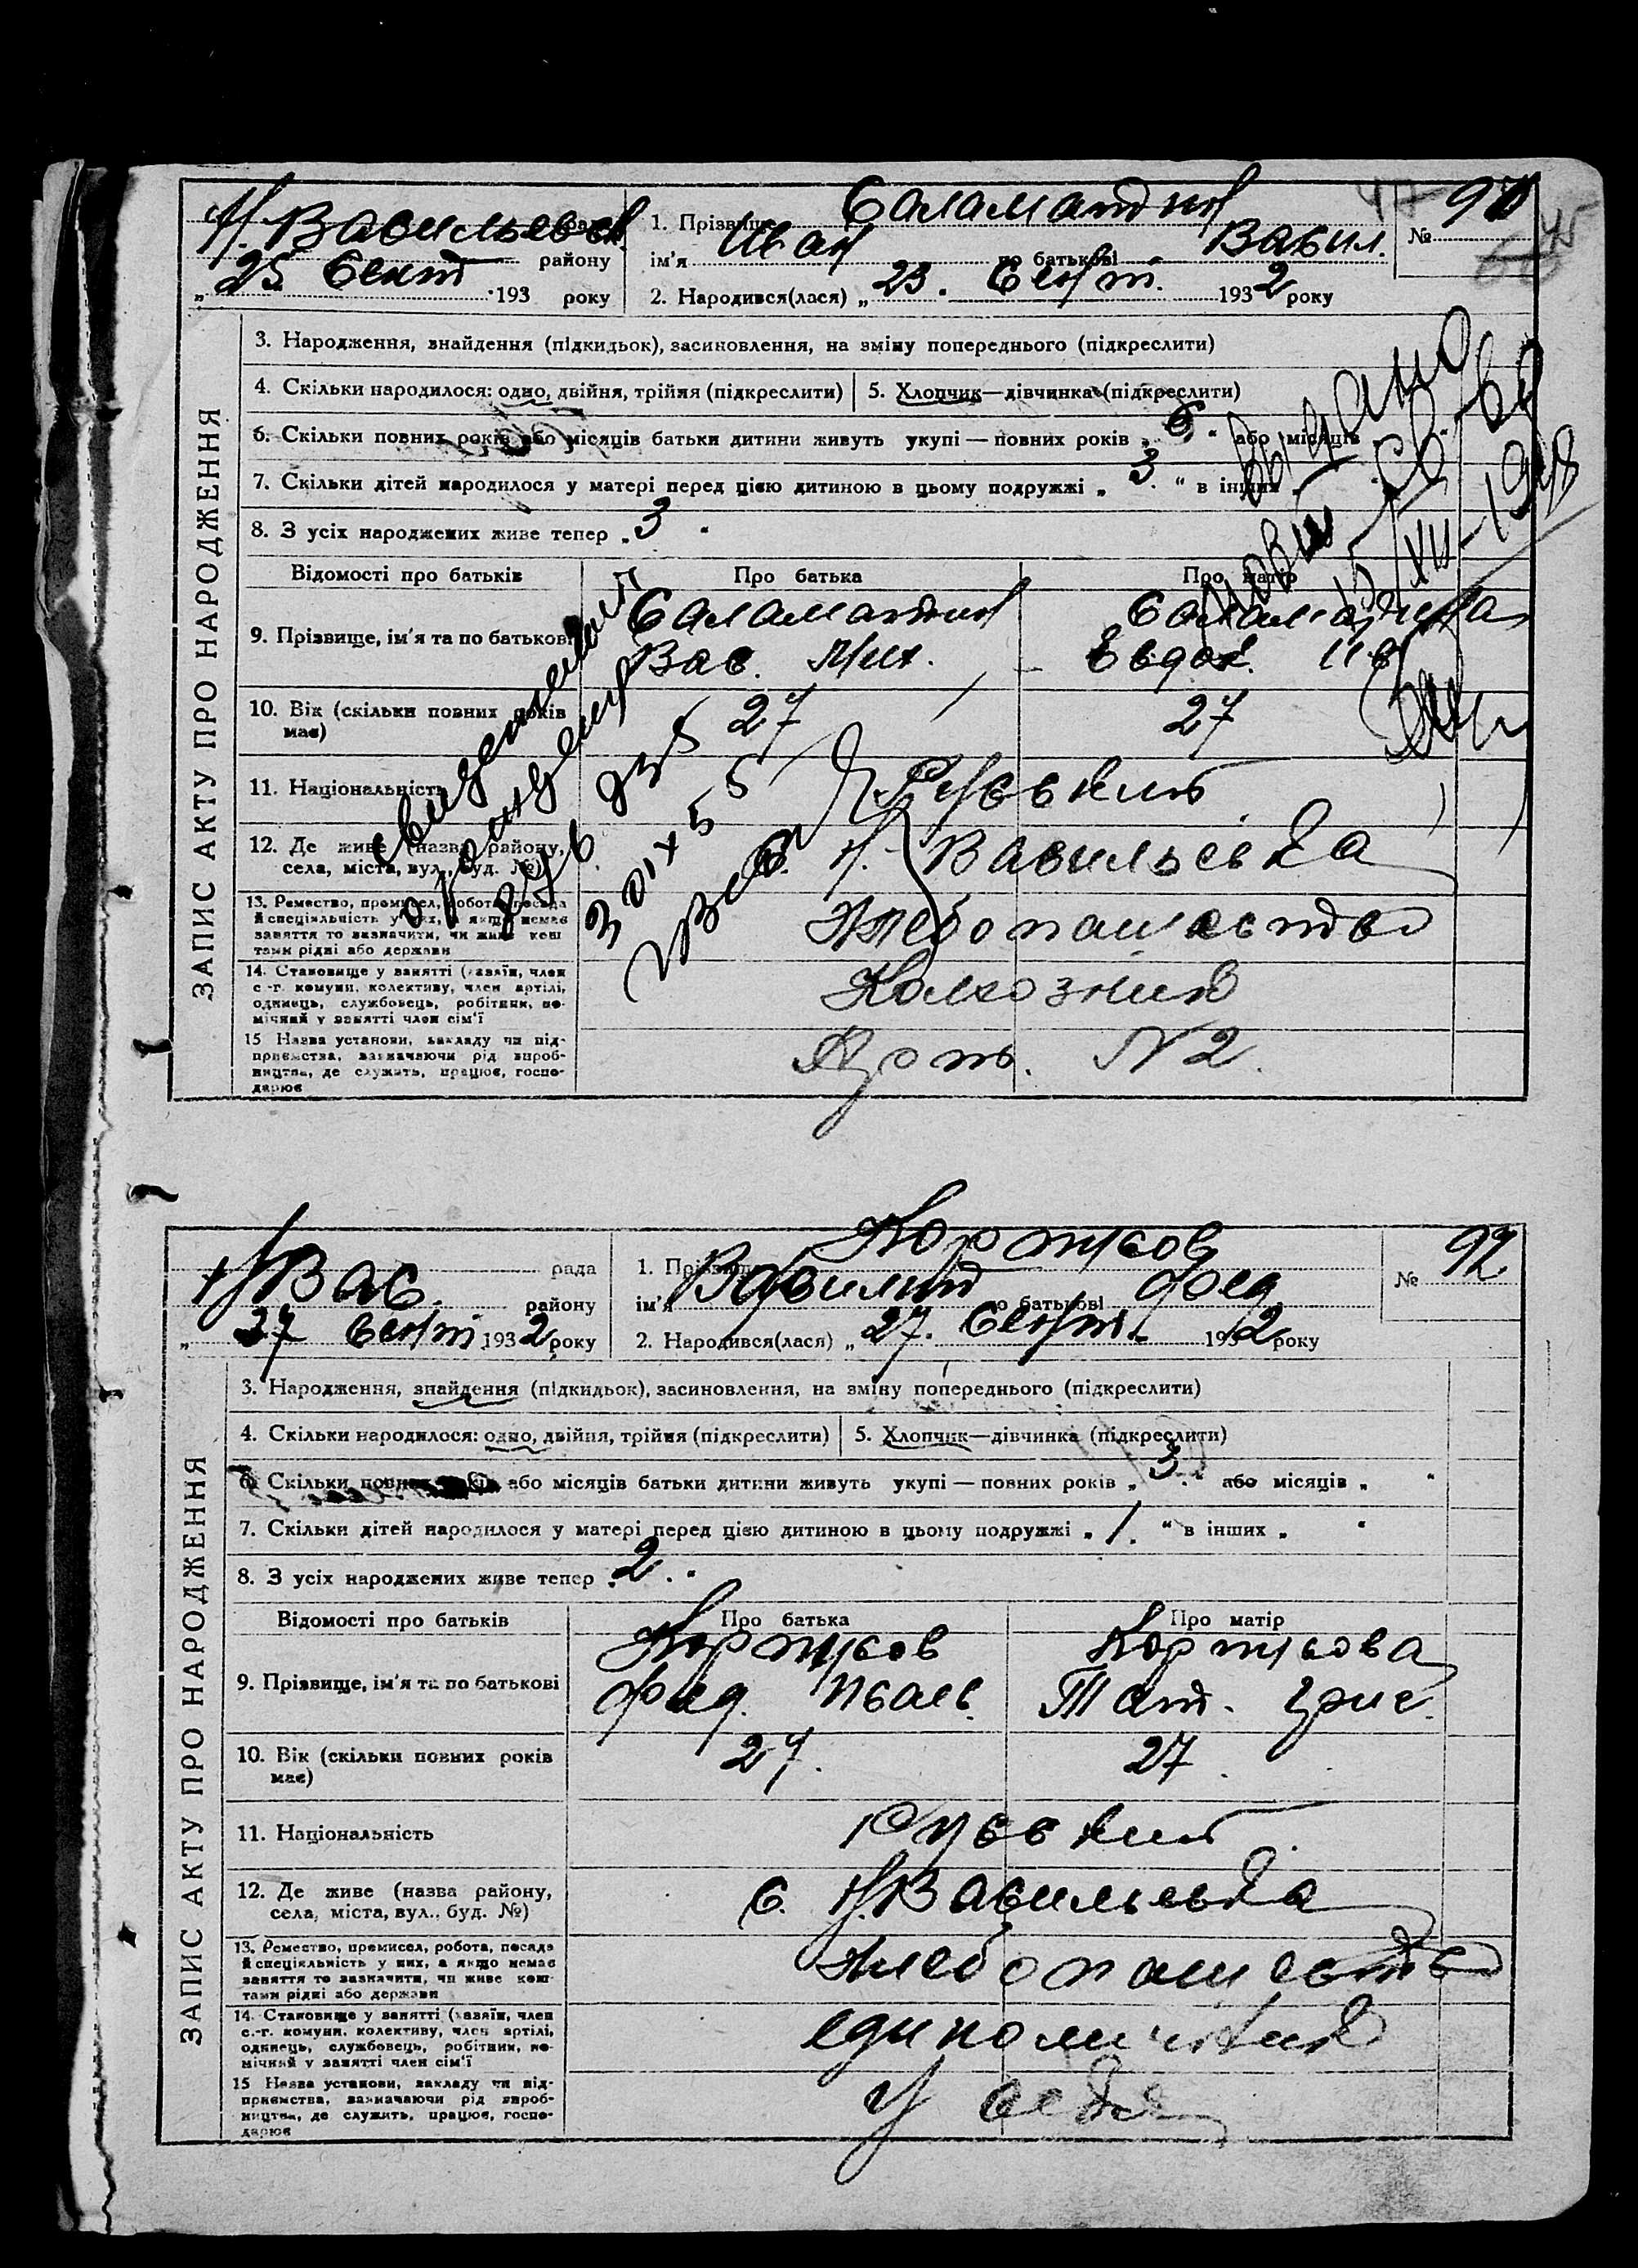 Н. Васильевск рада
району
„ 25 Сент 193 року
1. Прізвище Саламатин
ім'я Иван по батькові Васил.
2. Народився(лася) „ 23. Сент. 1932 року
№ 91
47
45
ЗАПИС АКТУ ПРО НАРОДЖЕННЯ
3. Народження, знайдення (підкидьок), засиновлення, на зміну попереднього (підкреслити)
4. Скільки народилося: одно, двійня, трійня (підкреслити)
5. Хлопчик—дівчинка (підкреслити)
6. Скільки повних років або місяців батьки дитини живуть укупі — повних років „ 6 “ або місяців
7. Скільки дітей народилося у матері перед цією дитиною в цьому подружжі „ 3. “ в інших
8. З усіх народжених живе тепер „ 3.
Відомості про батьків
Про батька
Про матір
9. Прізвище, ім'я та по батькові
Саламатин
Вас. Мих.
Саламатина
Евдок. Ив
10. Вік (скільки повних років має)
27
27
11. Національність
Русский
12. Де живе (назва району, села, міста, вул., буд. №)
Н. Васильевка
13. Ремество, промисел, робота, посада й спеціяльність у них, а якщо немає заняття то зазначити, чи живе коштами рідні або держави
Хлебопашество
14. Становище у занятті (хазяїн, член с.-г. комуни, колективу, член артілі, одинець, службовець, робітник, помічний у занятті член сім'ї
Колхозник
15 Назва установи, закладу чи підприємства, зазначаючи рід виробництва, де служить, працює, господарює
Арт. N 2.
Выдано
15/XII-1948
свидетельство
о рождении
3 IX 55
Н Вас. рада
району
„ 27 Сент 1932 року
1. Прізвище Коржуков
ім'я Василий по батькові Фед
2. Народився(лася) „ 27. Сент. 1932 року
№ 92
ЗАПИС АКТУ ПРО НАРОДЖЕННЯ
3. Народження, знайдення (підкидьок), засиновлення, на зміну попереднього (підкреслити)
4. Скільки народилося: одно, двійня, трійня (підкреслити)
5. Хлопчик—дівчинка (підкреслити)
6. Скільки повних років або місяців батьки дитини живуть укупі — повних років „ 3. “ або місяців „ “
7. Скільки дітей народилося у матері перед цією дитиною в цьому подружжі „ 1. “ в інших „ “
8. З усіх народжених живе тепер „ 2. “
Відомості про батьків
Про батька
Про матір
9. Прізвище, ім'я та по батькові
Коржуков
Фед. Иван.
Коржукова
Тат. Григ.
10. Вік (скільки повних років має)
27.
27.
11. Національність
Русский
12. Де живе (назва району, села, міста, вул., буд. №)
с. Н. Васильевка
13. Ремество, промисел, робота, посада й спеціяльність у них, а якщо немає заняття то зазначити, чи живе коштами рідні або держави
Хлебопашество
14. Становище у занятті (хазяїн, член с.-г. комуни, колективу, член артілі, одинець, службовець, робітник, помічний у занятті член сім'ї
единоличник
15 Назва установи, закладу чи підприємства, зазначаючи рід виробництва, де служить, працює, господарює
У себя